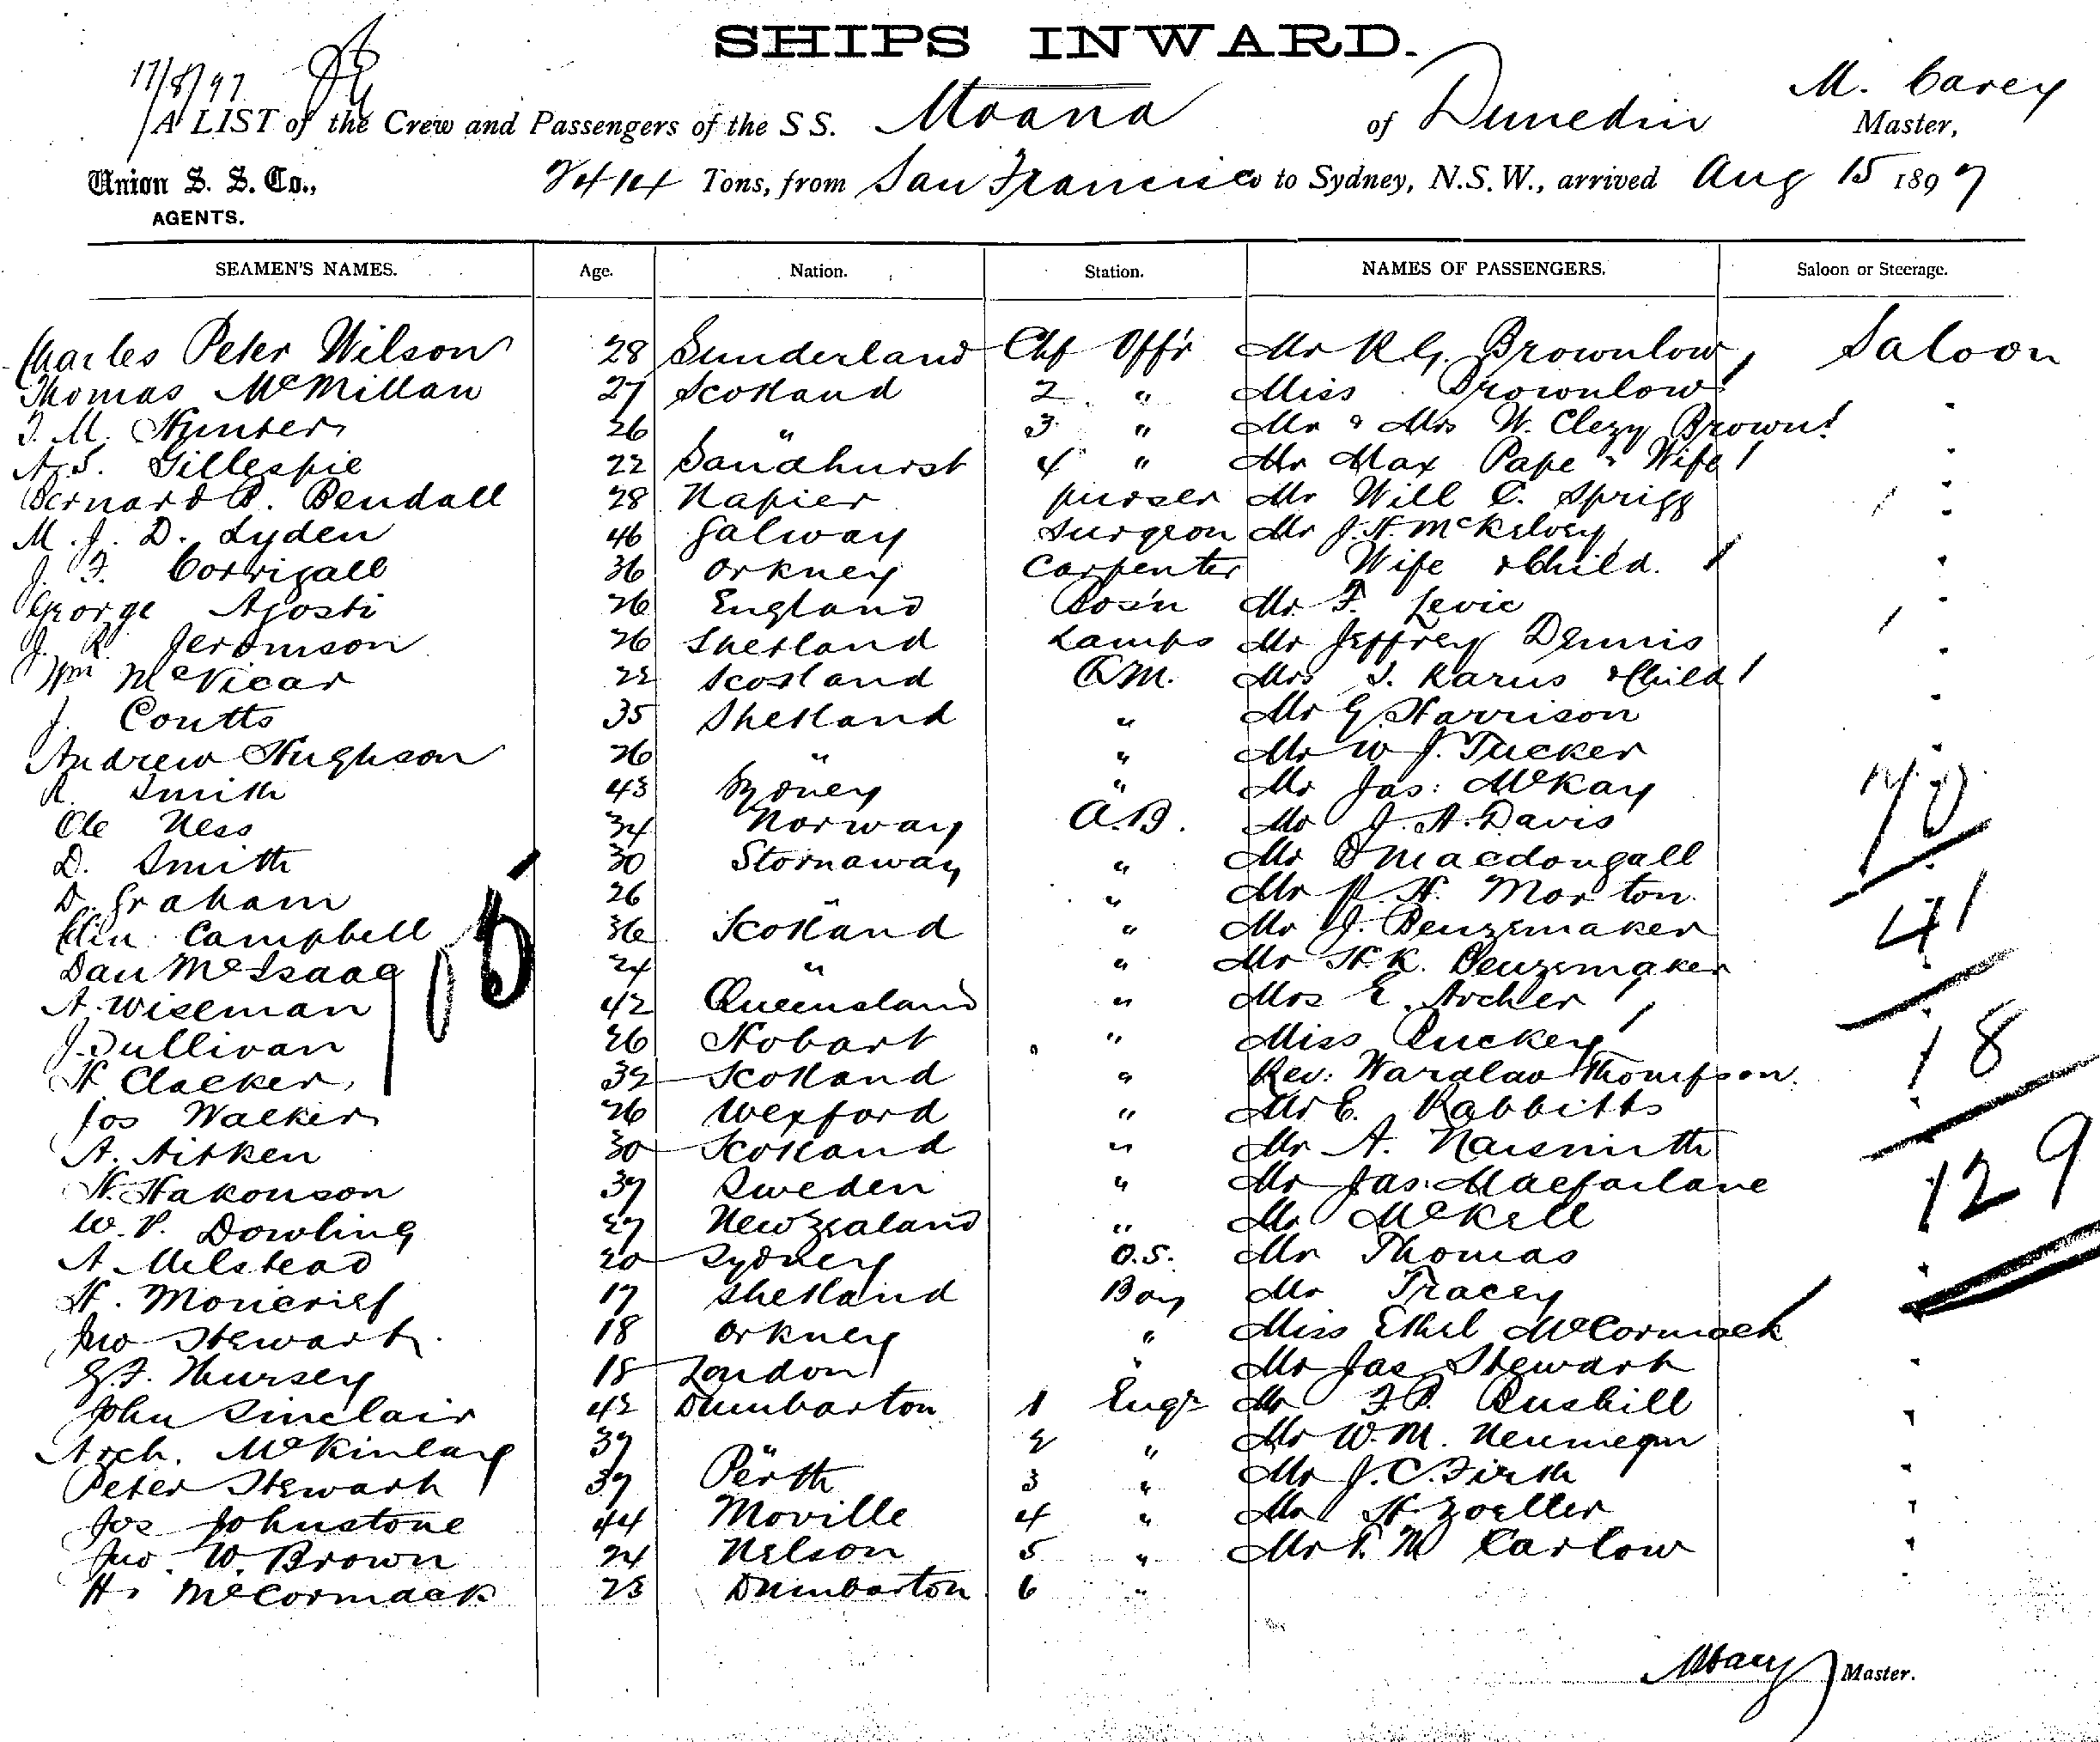 SHIPS INWARD.
17/8/97
M. Carey
A LIST of the Crew and Passengers of the S S. Moana of Dunedin Master,
Union S. S. Co., 2414 Tons, from San Francisco to Sydney, N.S.W., arrived Aug 15 1897
AGENTS.
SEAMEN'S NAMES. Age. Nation. Station. NAMES OF PASSENGERS. Saloon or Steerage.
Charles Peter Wilson 28 Sunderland Chf Offr Mr R.G. Brownlow Saloon
Thomas McMillan 27 Scotland 2 " Miss Brownlow
J. M. Hunter 26 " 3 " Mr & Mrs W. Clezy Brown
A. S. Gillespie 22 Sandhurst 4 " Mr Max Pape & Wife
Bernard B. Bendall 28 Napier purser Mr Will C. Sprigg
M. J. D. Lyden 46 Galway Surgeon Mr J. H. McKelvey
J. F. Corrigall 36 Orkney Carpenter Wife & Child.
George Agosti 26 England Bos'n Mr. F. Levic
J. R. Jeromson 26 Shetland Lamps Mr Jeffrey Dennis
Wm McVicar 22 Scotland Q.M. Mrs J. Karus & Child
J. Coutts 35 Shetland " Mr G. Harrison
Andrew Hughson 26 " " Mr W. J. Tucker
R. Smith 43 Sydney " Mr Jas: McKay
Ole Ness 34 Norway A.B. Mr J. A. Davis
70
D. Smith 30 Stornaway " Mr D Macdougall
D. Graham 26 " " Mr H. Morton
Colin Campbell 36 Scotland " Mr J. Benzemaker
41
Dan McIsaac 24 " " Mr H. K. Benzemaker
A. Wiseman 42 Queensland " Mrs E. Archer
J. Sullivan 26 Hobart " Miss Buckey
18
H Clacker 32 Scotland " Rev: Wardlaw Thompson.
Jos Walker 26 Wexford " Mr E. Rabbitts
A. Aitken 30 Scotland " Mr A. Naismith
H. Hakonson 37 Sweden " Mr Jas. Macfarlane
129
W. P. Dowling 27 New Zealand " Mr McKell
A. Milstead 20 Sydney O.S. Mr Thomas
H. Moncrief 17 Shetland Boy Mr Tracey
Jno Stewart 18 Orkney " Miss Ethel McCormack
G. F. Thursey 18 London " Mr Jas Stewart
John Sinclair 42 Dumbarton 1 Engr Mr F. P. Bushill
Arch. McKinlay 37 " 2 " Mr W. M. Neumegen
Peter Stewart 37 Perth 3 " Mr J. C. Firth
Jos Johnstone 44 Moville 4 " Mr H. Zoeller
Jno. W. Brown 24 Nelson 5 " Mr P. M Carlow
H. McCormack 23 Dumbarton 6 "
MCarey Master.